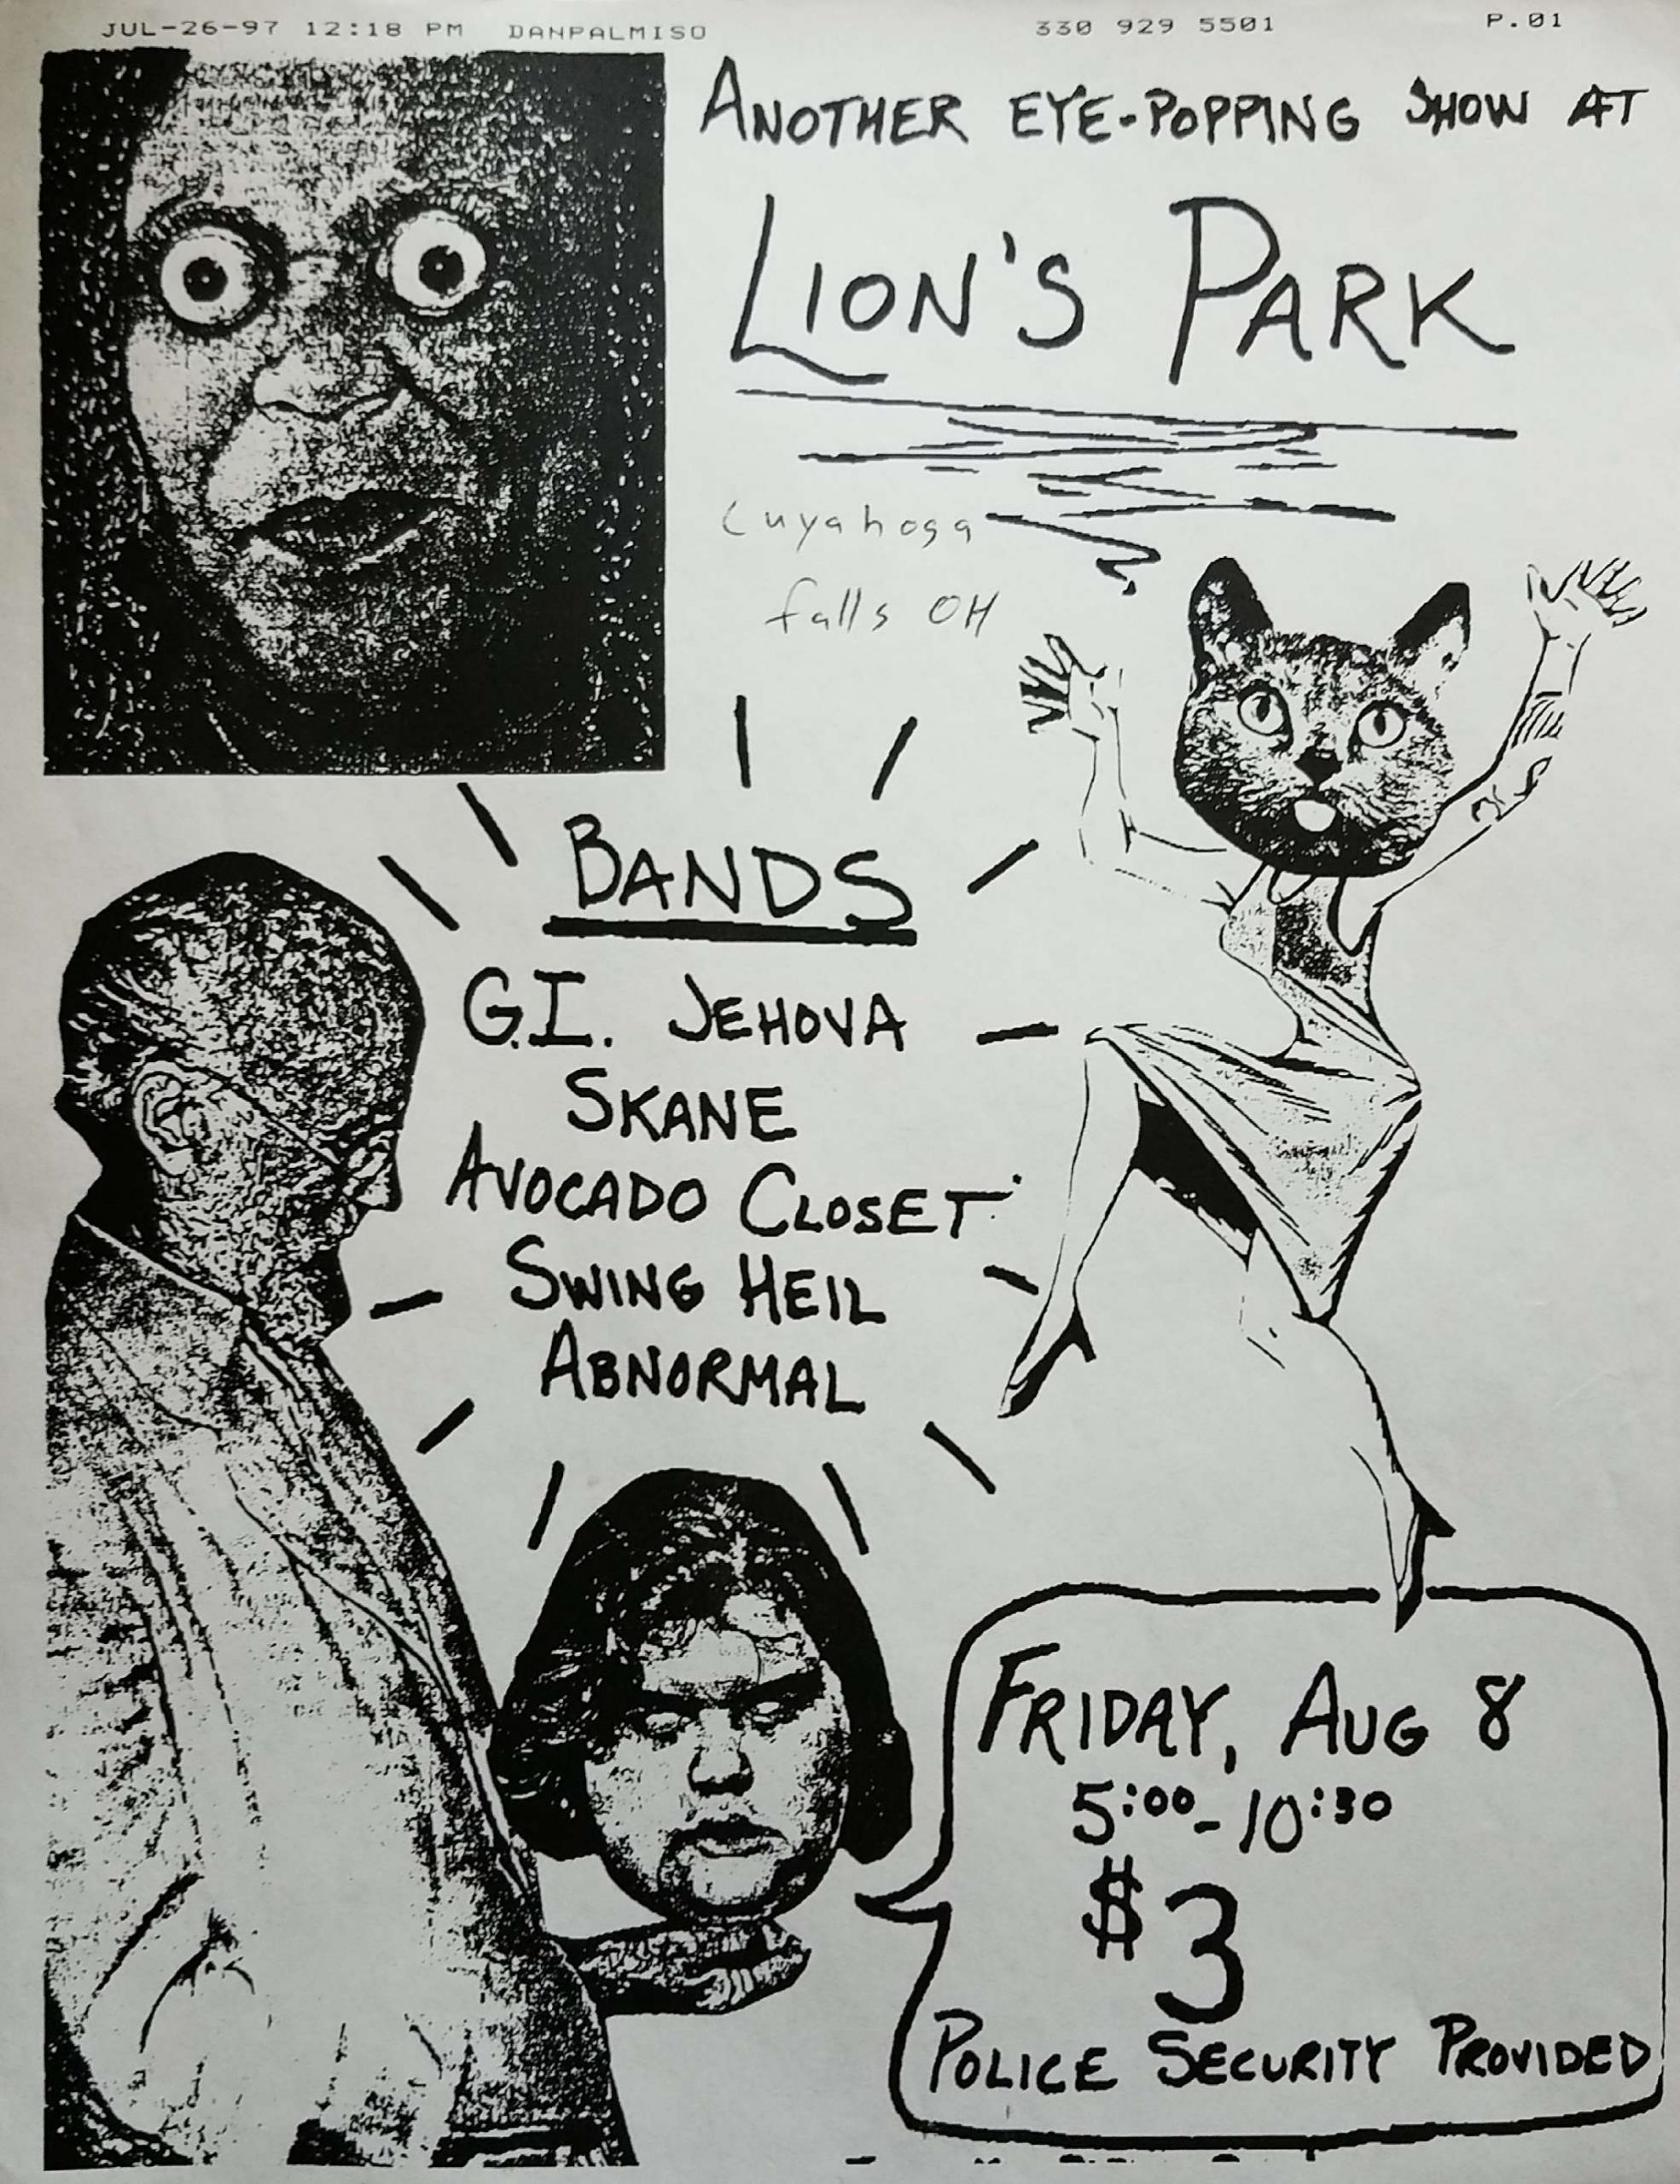 JUL-26-97 12:18 PM DANPALMISO 330 929 5501 P.01
ANOTHER EYE-POPPING SHOW AT
LION'S PARK
Cuyahoga
falls OH
BANDS
G.I. JEHOVA
SKANE
AVOCADO CLOSET
SWING HEIL
ABNORMAL
FRIDAY, AUG 8
5:00-10:30
$3
POLICE SECURITY PROVIDED